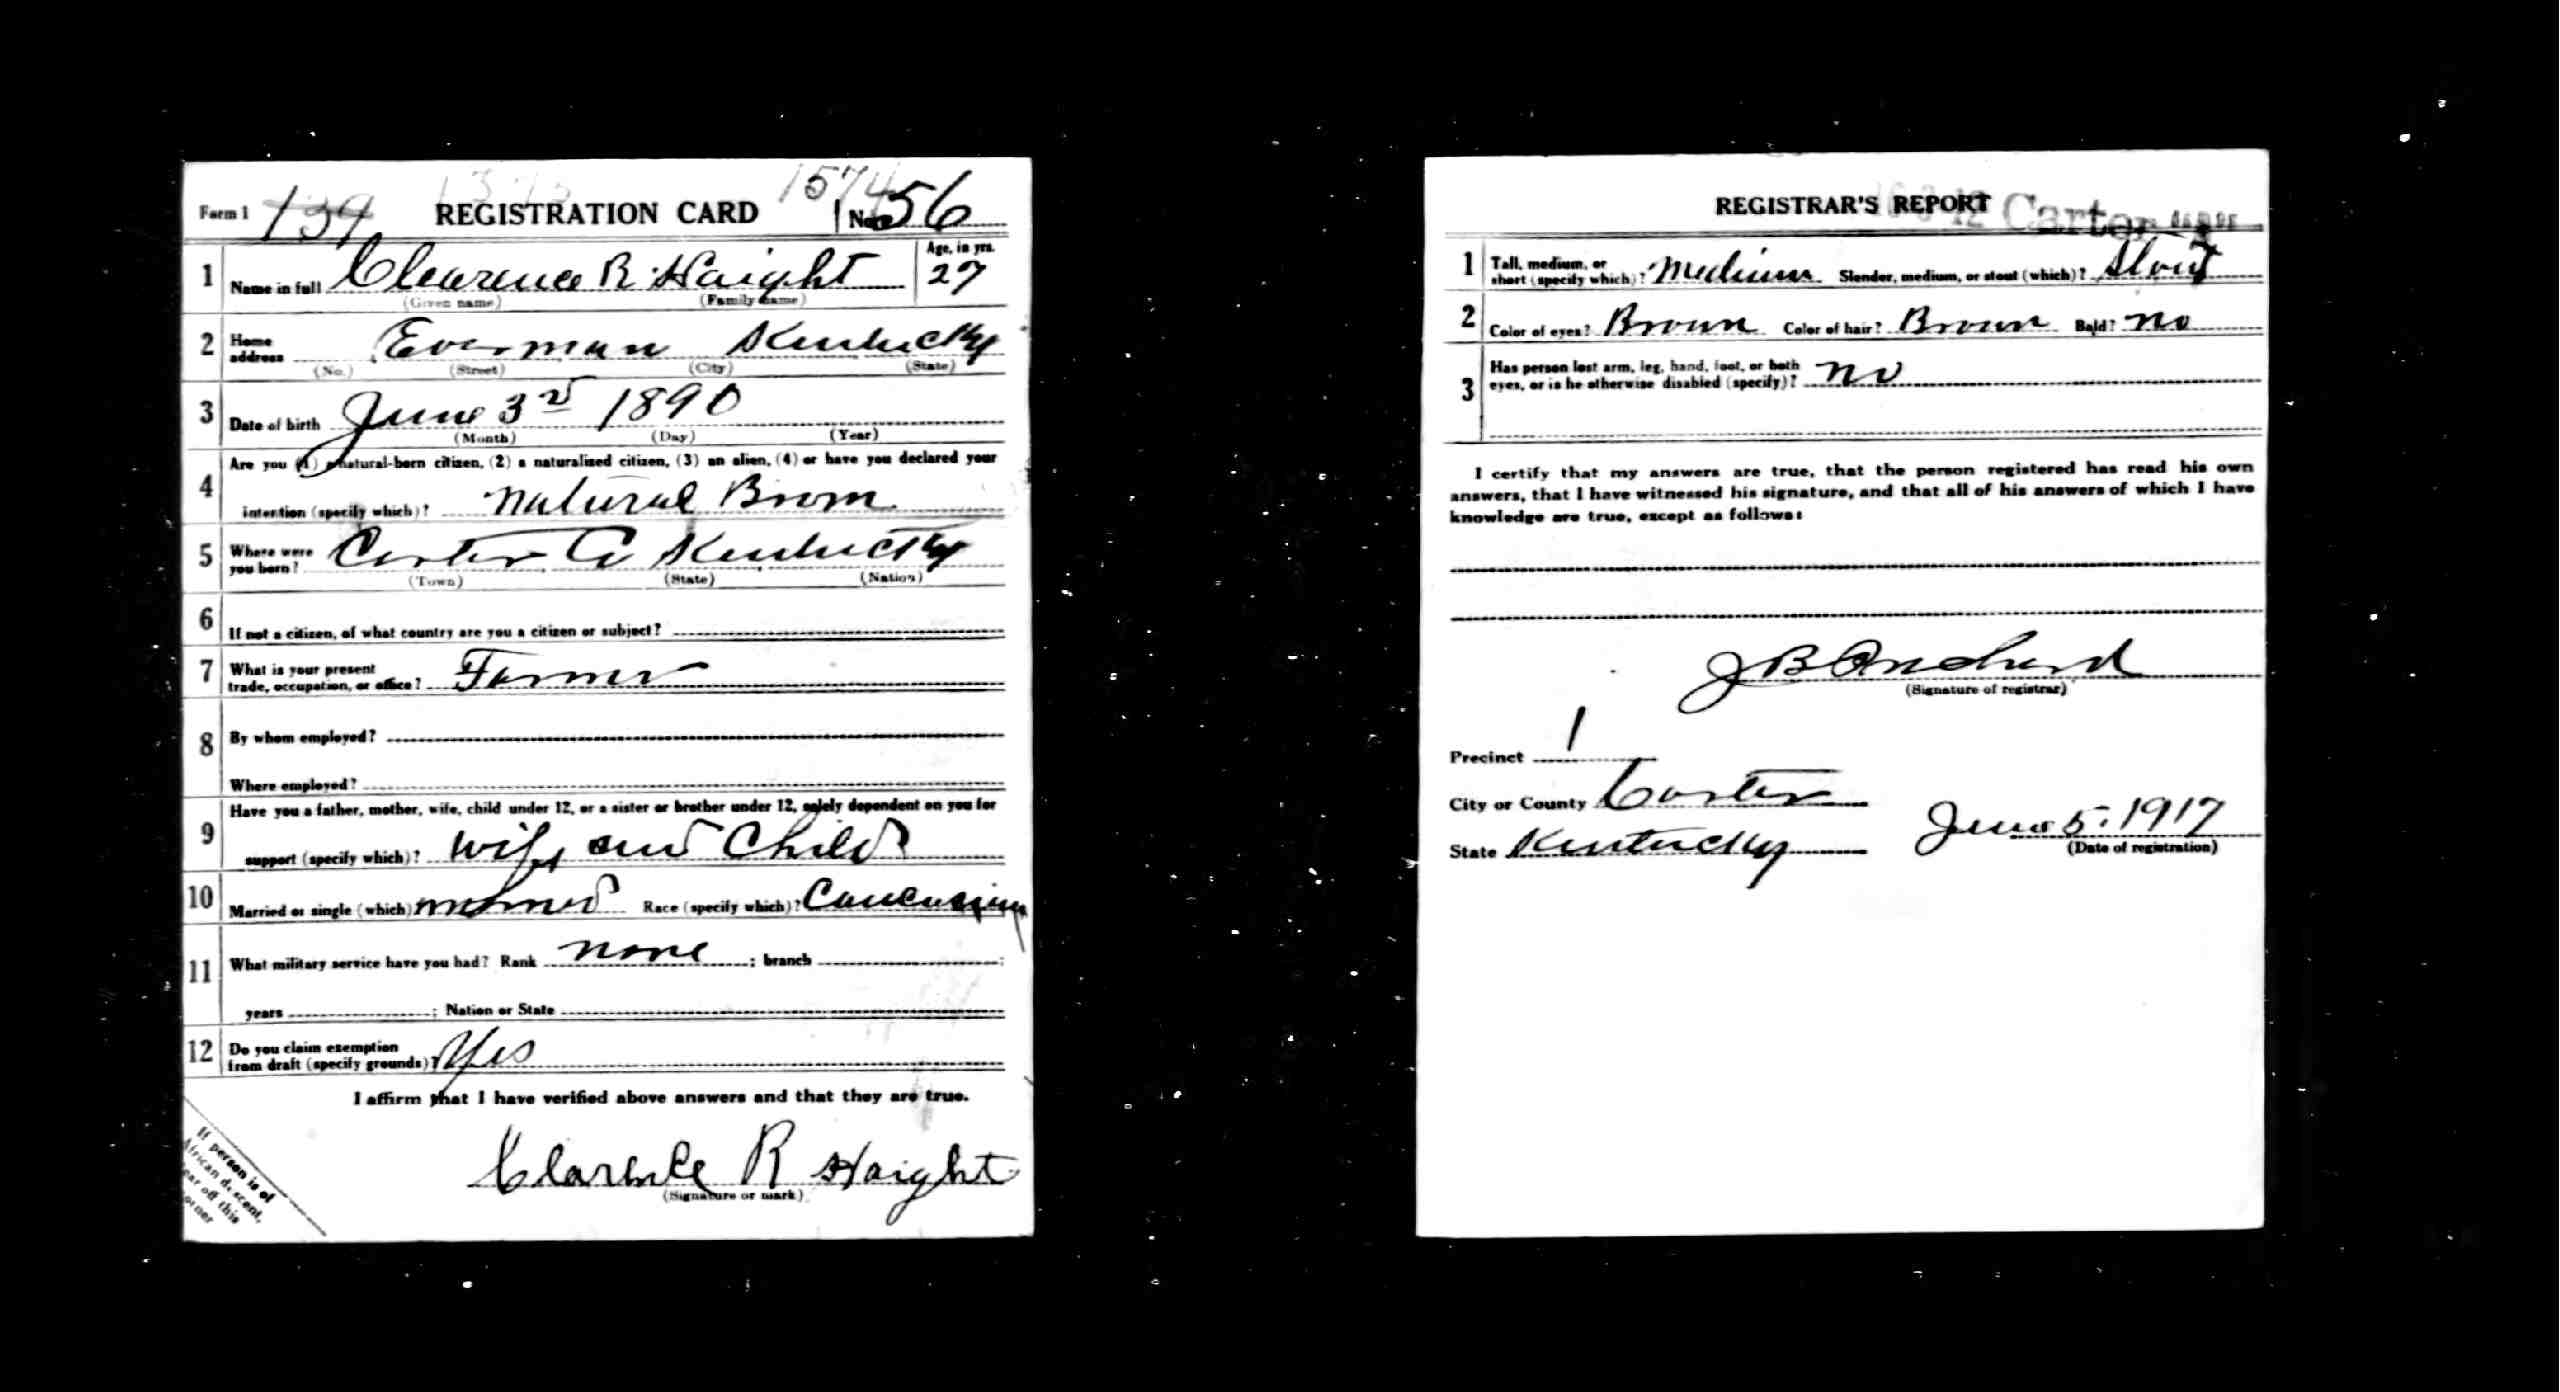 Form 1 139 REGISTRATION CARD No. 56
1574
1 Name in full Clearence R Haight Age, in yrs. 27
(Given name) (Family name)
2 Home address Everman Kentucky
(No.) (Street) (City) (State)
3 Date of birth June 3rd 1890
(Month) (Day) (Year)
Are you (1) a natural-born citizen, (2) a naturalized citizen, (3) an alien, (4) or have you declared your
4 intention (specify which)? Natural Born
5 Where were you born? Carter Co Kentucky
(Town) (State) (Nation)
6 If not a citizen, of what country are you a citizen or subject?
7 What is your present
trade, occupation, or office? Farmer
8 By whom employed?
Where employed?
Have you a father, mother, wife, child under 12, or a sister or brother under 12, solely dependent on you for
9 support (specify which)? Wife and Child
10 Married or single (which) married Race (specify which)? Caucasian
11 What military service have you had? Rank none ; branch ;
years ; Nation or State
12 Do you claim exemption
from draft (specify grounds)? Yes
I affirm that I have verified above answers and that they are true.
Clarence R Haight
(Signature or mark)
If person is of
African descent,
tear off this
corner
REGISTRAR'S REPORT
Carter
1 Tall, medium, or
short (specify which)? Medium Slender, medium, or stout (which)? Stout
2 Color of eyes? Brown Color of hair? Brown Bald? no
Has person lost arm, leg, hand, foot, or both
3 eyes, or is he otherwise disabled (specify)? no
I certify that my answers are true, that the person registered has read his own
answers, that I have witnessed his signature, and that all of his answers of which I have
knowledge are true, except as follows:
J B
(Signature of registrar)
Precinct 1
City or County Carter
State Kentucky June 5. 1917
(Date of registration)